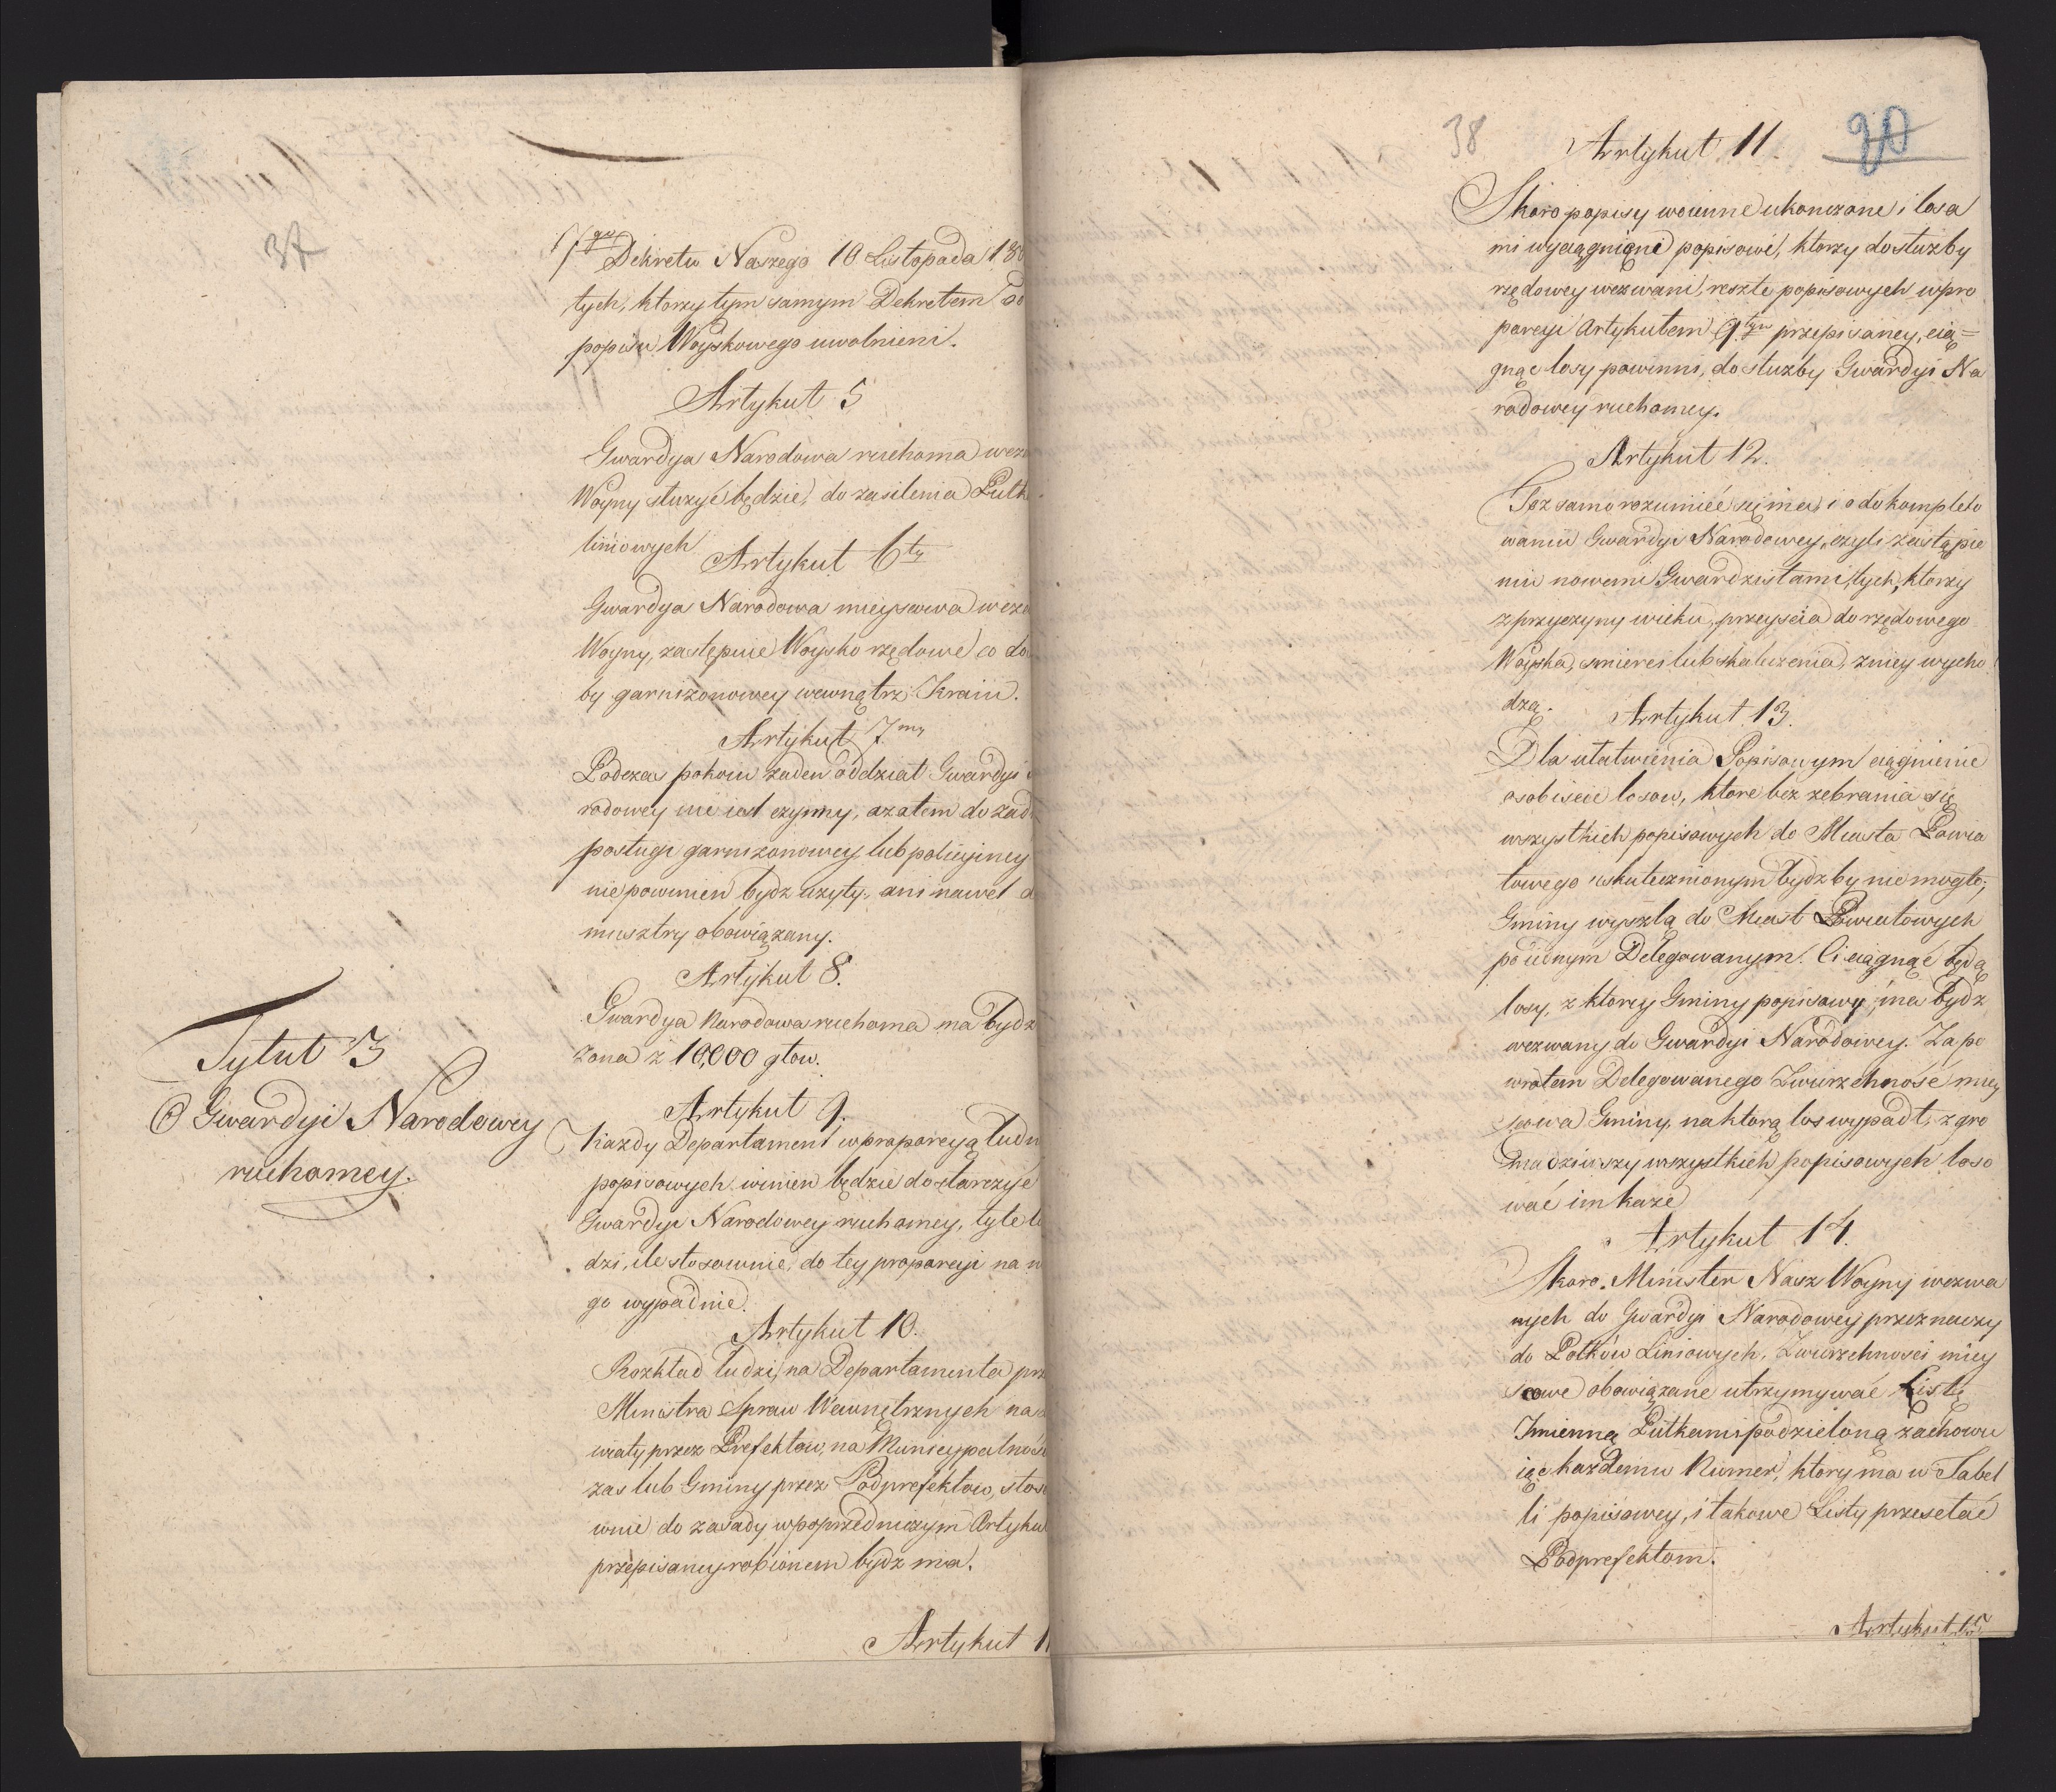 37
7go Dekretu Naszego 10 Listopada 180
tych, ktorzy tym samym Dekretem od
popisu Woyskowego uwolnieni.
Artykuł 5
Gwardya Narodowa ruchoma
Woyny służyć będzie, do zasilenia Pułk
liniowych
Artykuł 6ty
Gwardya Narodowa mieyscowa
Woyny, zastępuie Woysko rzędowe co do
by garnizonowey wewnątrz Kraiu.
Artykuł 7my
Podczas pokoiu żaden oddział Gwardyi
rodowey nie iest czynny, azatem do żad
posługi garnizonowey lub policyiney
nie powinien bydz użyty, ani nawet d
musztry obowiązany.
Artykuł 8.
Gwardya Narodowa ruchoma ma bydz
żona z 10,000 głow.
Tytuł 3
O Gwardyi Narodowey
ruchomey.
Artykuł 9.
Każdy Departament w proporcyą ludn
popisowych winien będzie dostarczyć
Gwardyi Narodowey ruchomey, tyle lu
dzi, ile stosownie, do tey proporcyi na n
go wypadnie.
Artykuł 10.
Rozkład ludzi, na Departamenta prz
Ministra Spraw Wewnętrznych na
wiaty przez Prefektow, na Municypalnoś
zas lub Gminy przez Podprefektow, stos
ownie do zasady w poprzedniczym Artyku
przepisaney robionem bydz ma.
Artykuł 1
38
20
Artykuł 11.
Skoro popisy woienne ukonczone, i losa
mi wyciągnieni popisowi, ktorzy do służby
rzędowey wezwani, reszta popisowych w pro
porcyi Artykułem 9tym przepisaney, cią=
gnąć losy powinni, do służby Gwardyi Na
rodowey ruchomey.
Artykuł 12.
Toż samo rozumieć się ma, i o dokompleto
waniu Gwardyi Narodowey, czyli zastąpie
niu nowemi Gwardzistami, tych, ktorzy
z przyczyny wieku, przeyscia do rzędowego
Woyska, smierci lub skaleczenia, z niey wycho
dzą.
Artykuł 13.
Dla ułatwienia Popisowym ciągnienie
osobiscie losow, ktore bez zebrania się
wszystkich popisowych do Miasta Powia
towego uskutecznionym bydz by nie mogło,
Gminy wyszlą do Miast Powiatowych
po iednym Delegowanym. Ci ciągnąć będą
losy, z ktorey Gminy popisowy, ma bydz
wezwany do Gwardyi Narodowey. Za po
wrotem Delegowanego Zwierzchność miey
scowa Gminy, na ktorą los wypadł, zgro
madziwszy wszystkich popisowych loso
wać im każe
Artykuł 14.
Skoro Minister Nasz Woyny wezwa
nych do Gwardyi Narodowey przeznaczy
do Połków Liniowych, Zwierzchnosci miey
scowe obowiązane utrzymywać Listę
Imienną Pułkami podzieloną zachowu
iąc każdemu Numer, ktory ma w Tabel
li popisowey, i takowe Listy przesełać
Podprefektom.
Artykuł 15